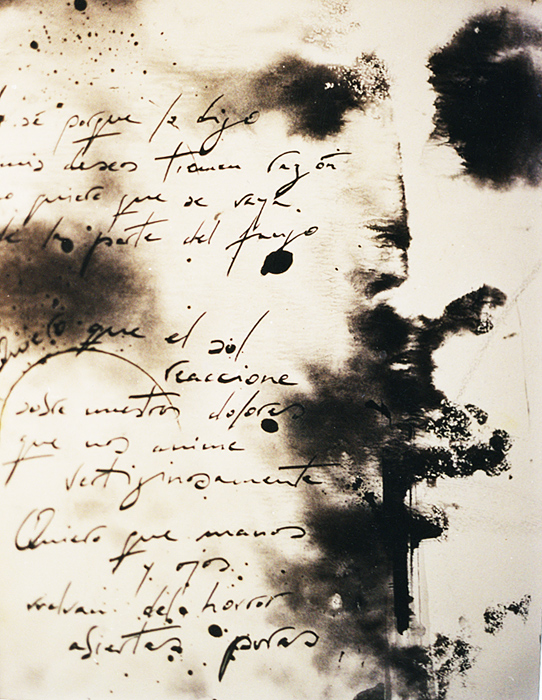 sé porque lo digo
mis deseos tienen razón
no quiero que se vaya
de la parte del fuego
Quiero que el sol
reaccione
sobre nuestros dolores
que nos anime
vertiginosamente
Quiero que manos
y ojos
vuelvan del horror
abiertas puras